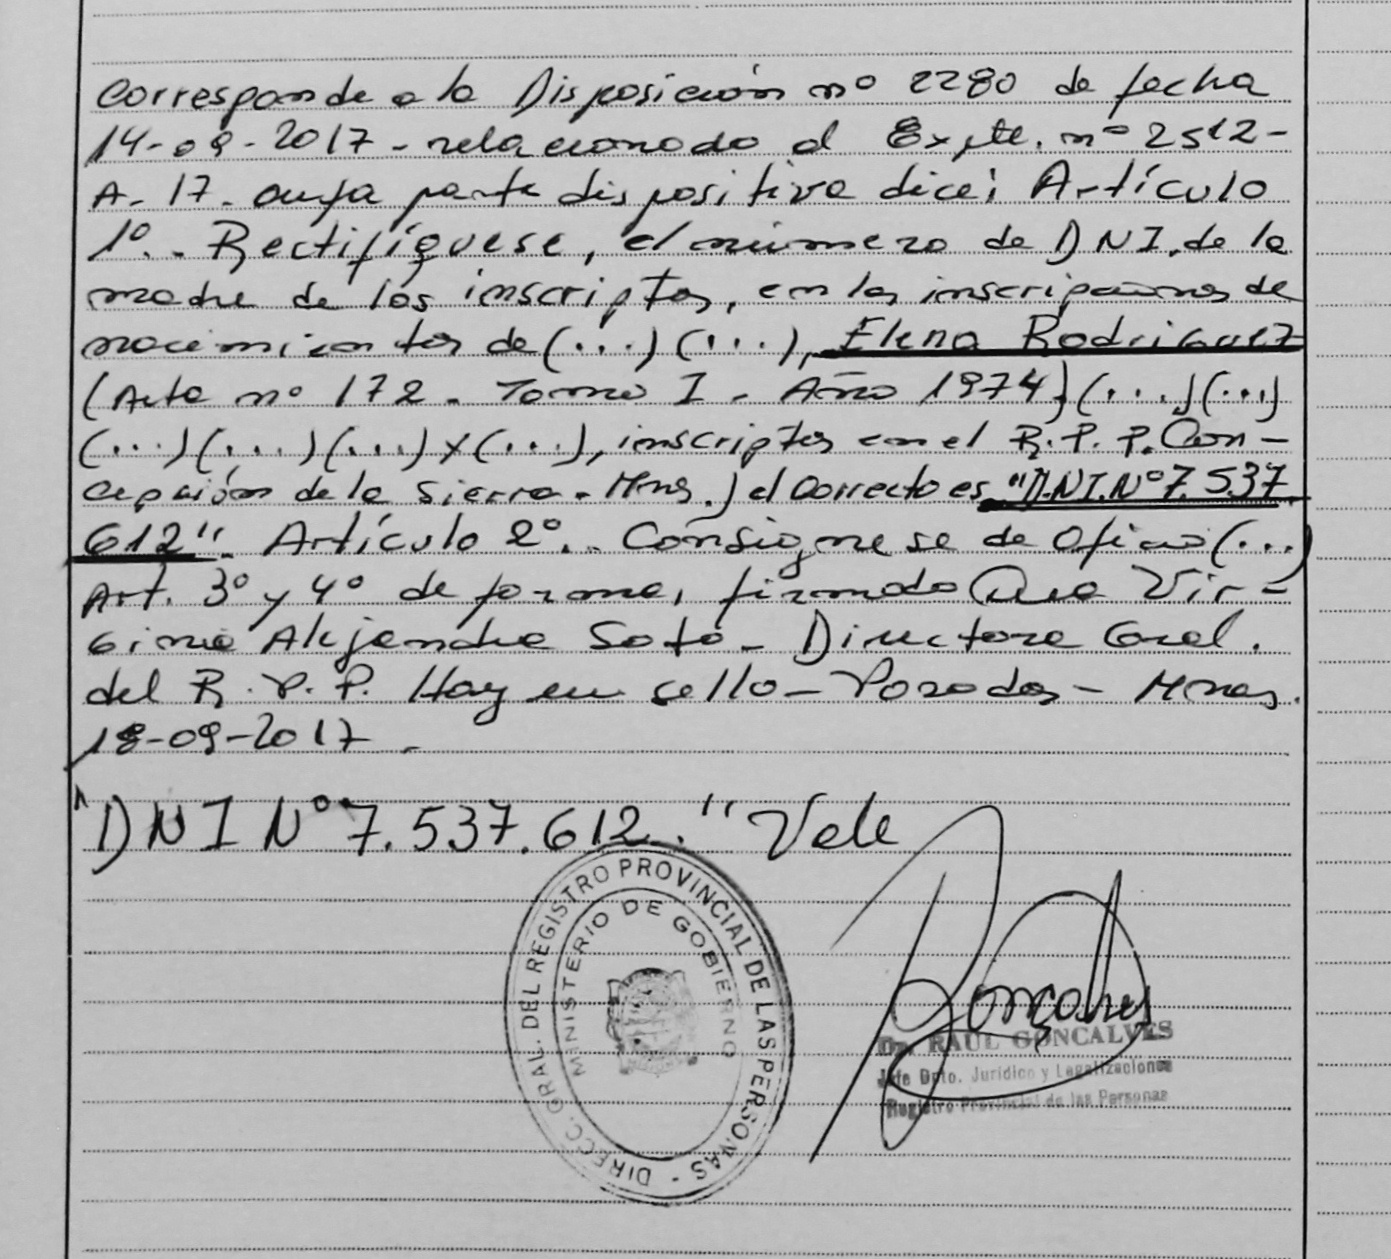 Corresponde a la Disposición nº 2280 de fecha
14-09-2017 - relacionado al Expte. nº 2512-
A-17- cuya parte dispositiva dice: Artículo
1º.- Rectifíquese, el número de DNI. de la
madre de los inscriptos, en las inscripciones de
nacimientos de (...) (...), Elena Rodriguez
(Acta nº 172 - Tomo I - Año 1974) (...) (...)
(...) (...) (...) y (...), inscriptos en el R.P.P. Con-
cepción de la Sierra - Mnes.) el correcto es "D.N.I. Nº 7.537.
612". Artículo 2º.- Consignese de Oficio (...)
Art. 3º y 4º de forma, firmado Dra Vir-
ginia Alejandra Soto - Directora Gral.
del R.P.P. Hay un sello - Posadas - Mnes.
18-09-2017.
"DNI Nº 7.537.612." Vale
DIRECC. GRAL. DEL REGISTRO PROVINCIAL DE LAS PERSONAS -
MINISTERIO DE GOBIERNO
Gonçalves
Dr. RAUL GONCALVES
Jefe Dpto. Jurídico y Legalizaciones
Registro Provincial de las Personas